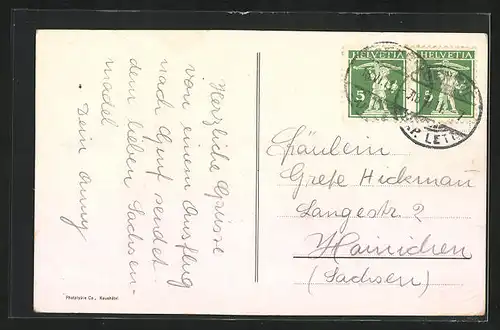 HELVETIA HELVETIA
5 5
EXP. LETT.
Herzliche Grüsse
von einem Ausflug
nach Genf sendet
dem lieben Sachsen-
madel
Dein Anny
Fräulein
Grete Heckmann
Langestr. 2
Hainichen
(Sachsen)
Phototypie Co., Neuchâtel